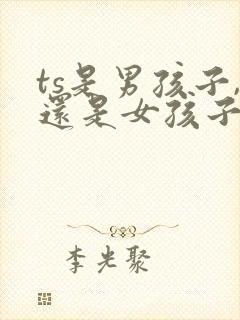 ts是男孩子,
還是女孩子
李光聚